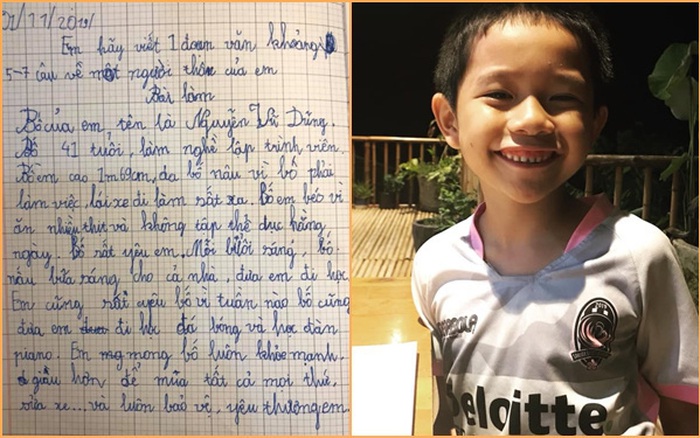 01/11/2019
Em hãy viết 1 đoạn văn khoảng
5-7 câu về một người thân của em
Bài làm
Bố của em, tên là Nguyễn Vũ Dũng.
Bố 41 tuổi, làm nghề lập trình viên.
Bố em cao 1m69cm, da bố nâu vì bố phải
làm việc, lái xe đi làm rất xa. Bố em béo vì
ăn nhiều thứ và không tập thể dục hằng
ngày. Bố rất yêu em. Mỗi buổi sáng, bố
nấu bữa sáng cho cả nhà, đưa em đi học
Em cũng rất yêu bố vì tuần nào bố cũng
đưa em đi học đá bóng và học đàn
piano. Em mong bố luôn khỏe mạnh,
giàu hơn để mua tất cả mọi thứ,
sửa xe...và luôn bảo vệ, yêu thương em
Deloitte